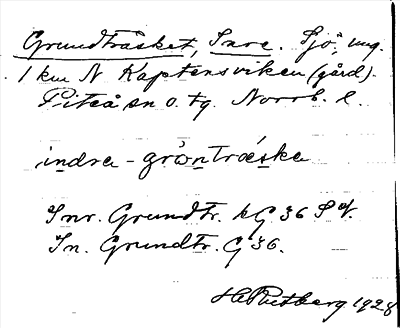 Grundträsket, Inre. Sjö, ung.
1 km N Kaptensviken (gård).
Piteå sn o. tg. Norrb. l.
indra-gròntrǽska
Inr. Grundtr. kG 36 SV.
In. Grundtr. G 36.
H Rutberg 1928